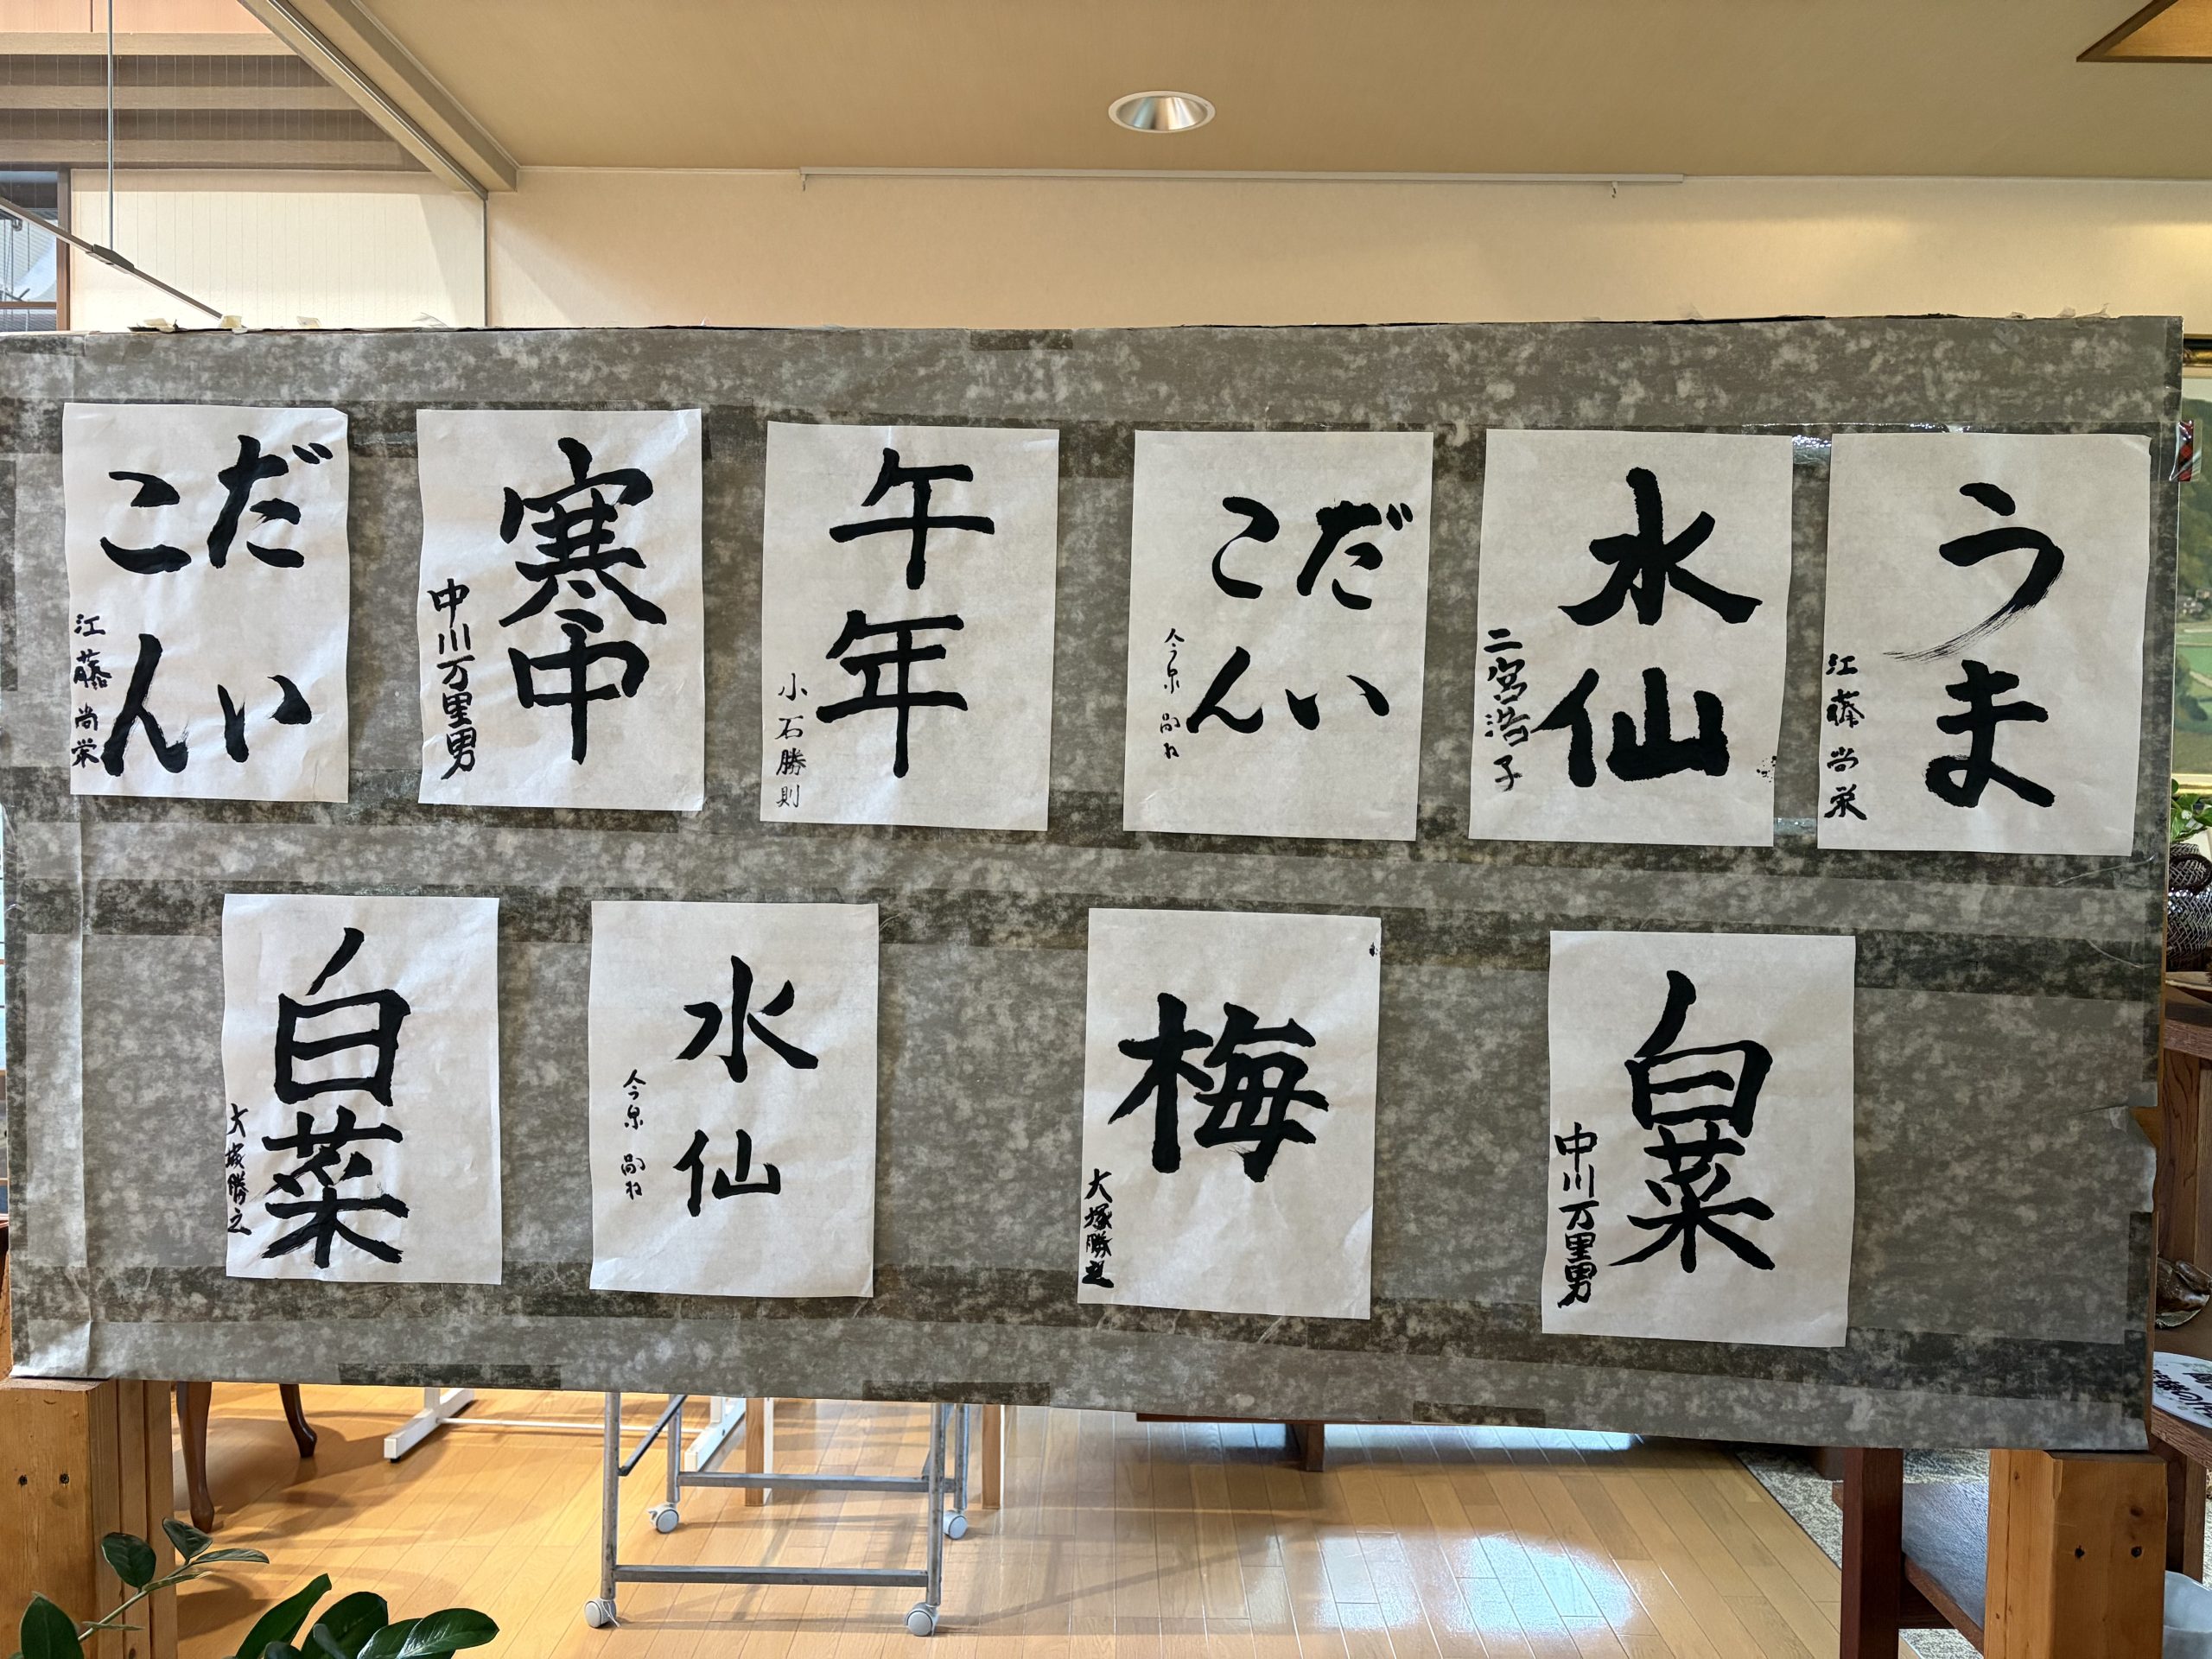 だい
こん
江藤尚栄
寒中
中川万里男
午年
小石勝則
だい
こん
今泉
水仙
二宮浩子
うま
江藤尚栄
白菜
大塚勝之
水仙
今泉
梅
大塚勝之
白菜
中川万里男